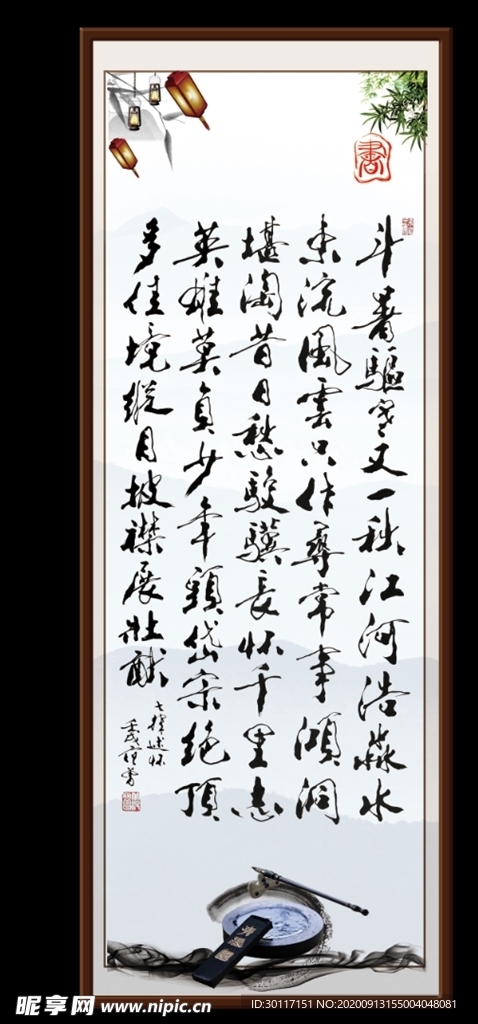 書
斗暑驅寒又一秋江河浩淼水
東流風雲只作尋常事澒洞
堪淘昔日愁駿驥長怀千里志
英雄莫負少年頭岱宗絕頂
多佳境縱目披襟展壯猷
七律述怀
壬戌范曾
昵享网 www.nipic.cn
ID:30117151 NO:20200913155004048081